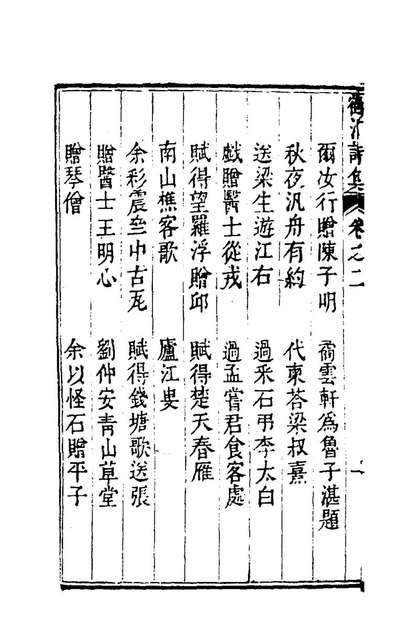 詩集 卷之二
爾汝行贈陳子明 矞雲軒為魯子湛題
秋夜汎舟有約 代柬荅梁叔熹
送梁生遊江右 過采石弔李太白
戲贈醫士從戎 過孟嘗君食客處
賦得望羅浮贈邱 賦得楚天春雁
南山樵客歌 廬江
余彩震中古瓦 賦得錢塘歌送張
贈醫士王明心 劉仲安青山草堂
贈琴僧 余以怪石贈平子